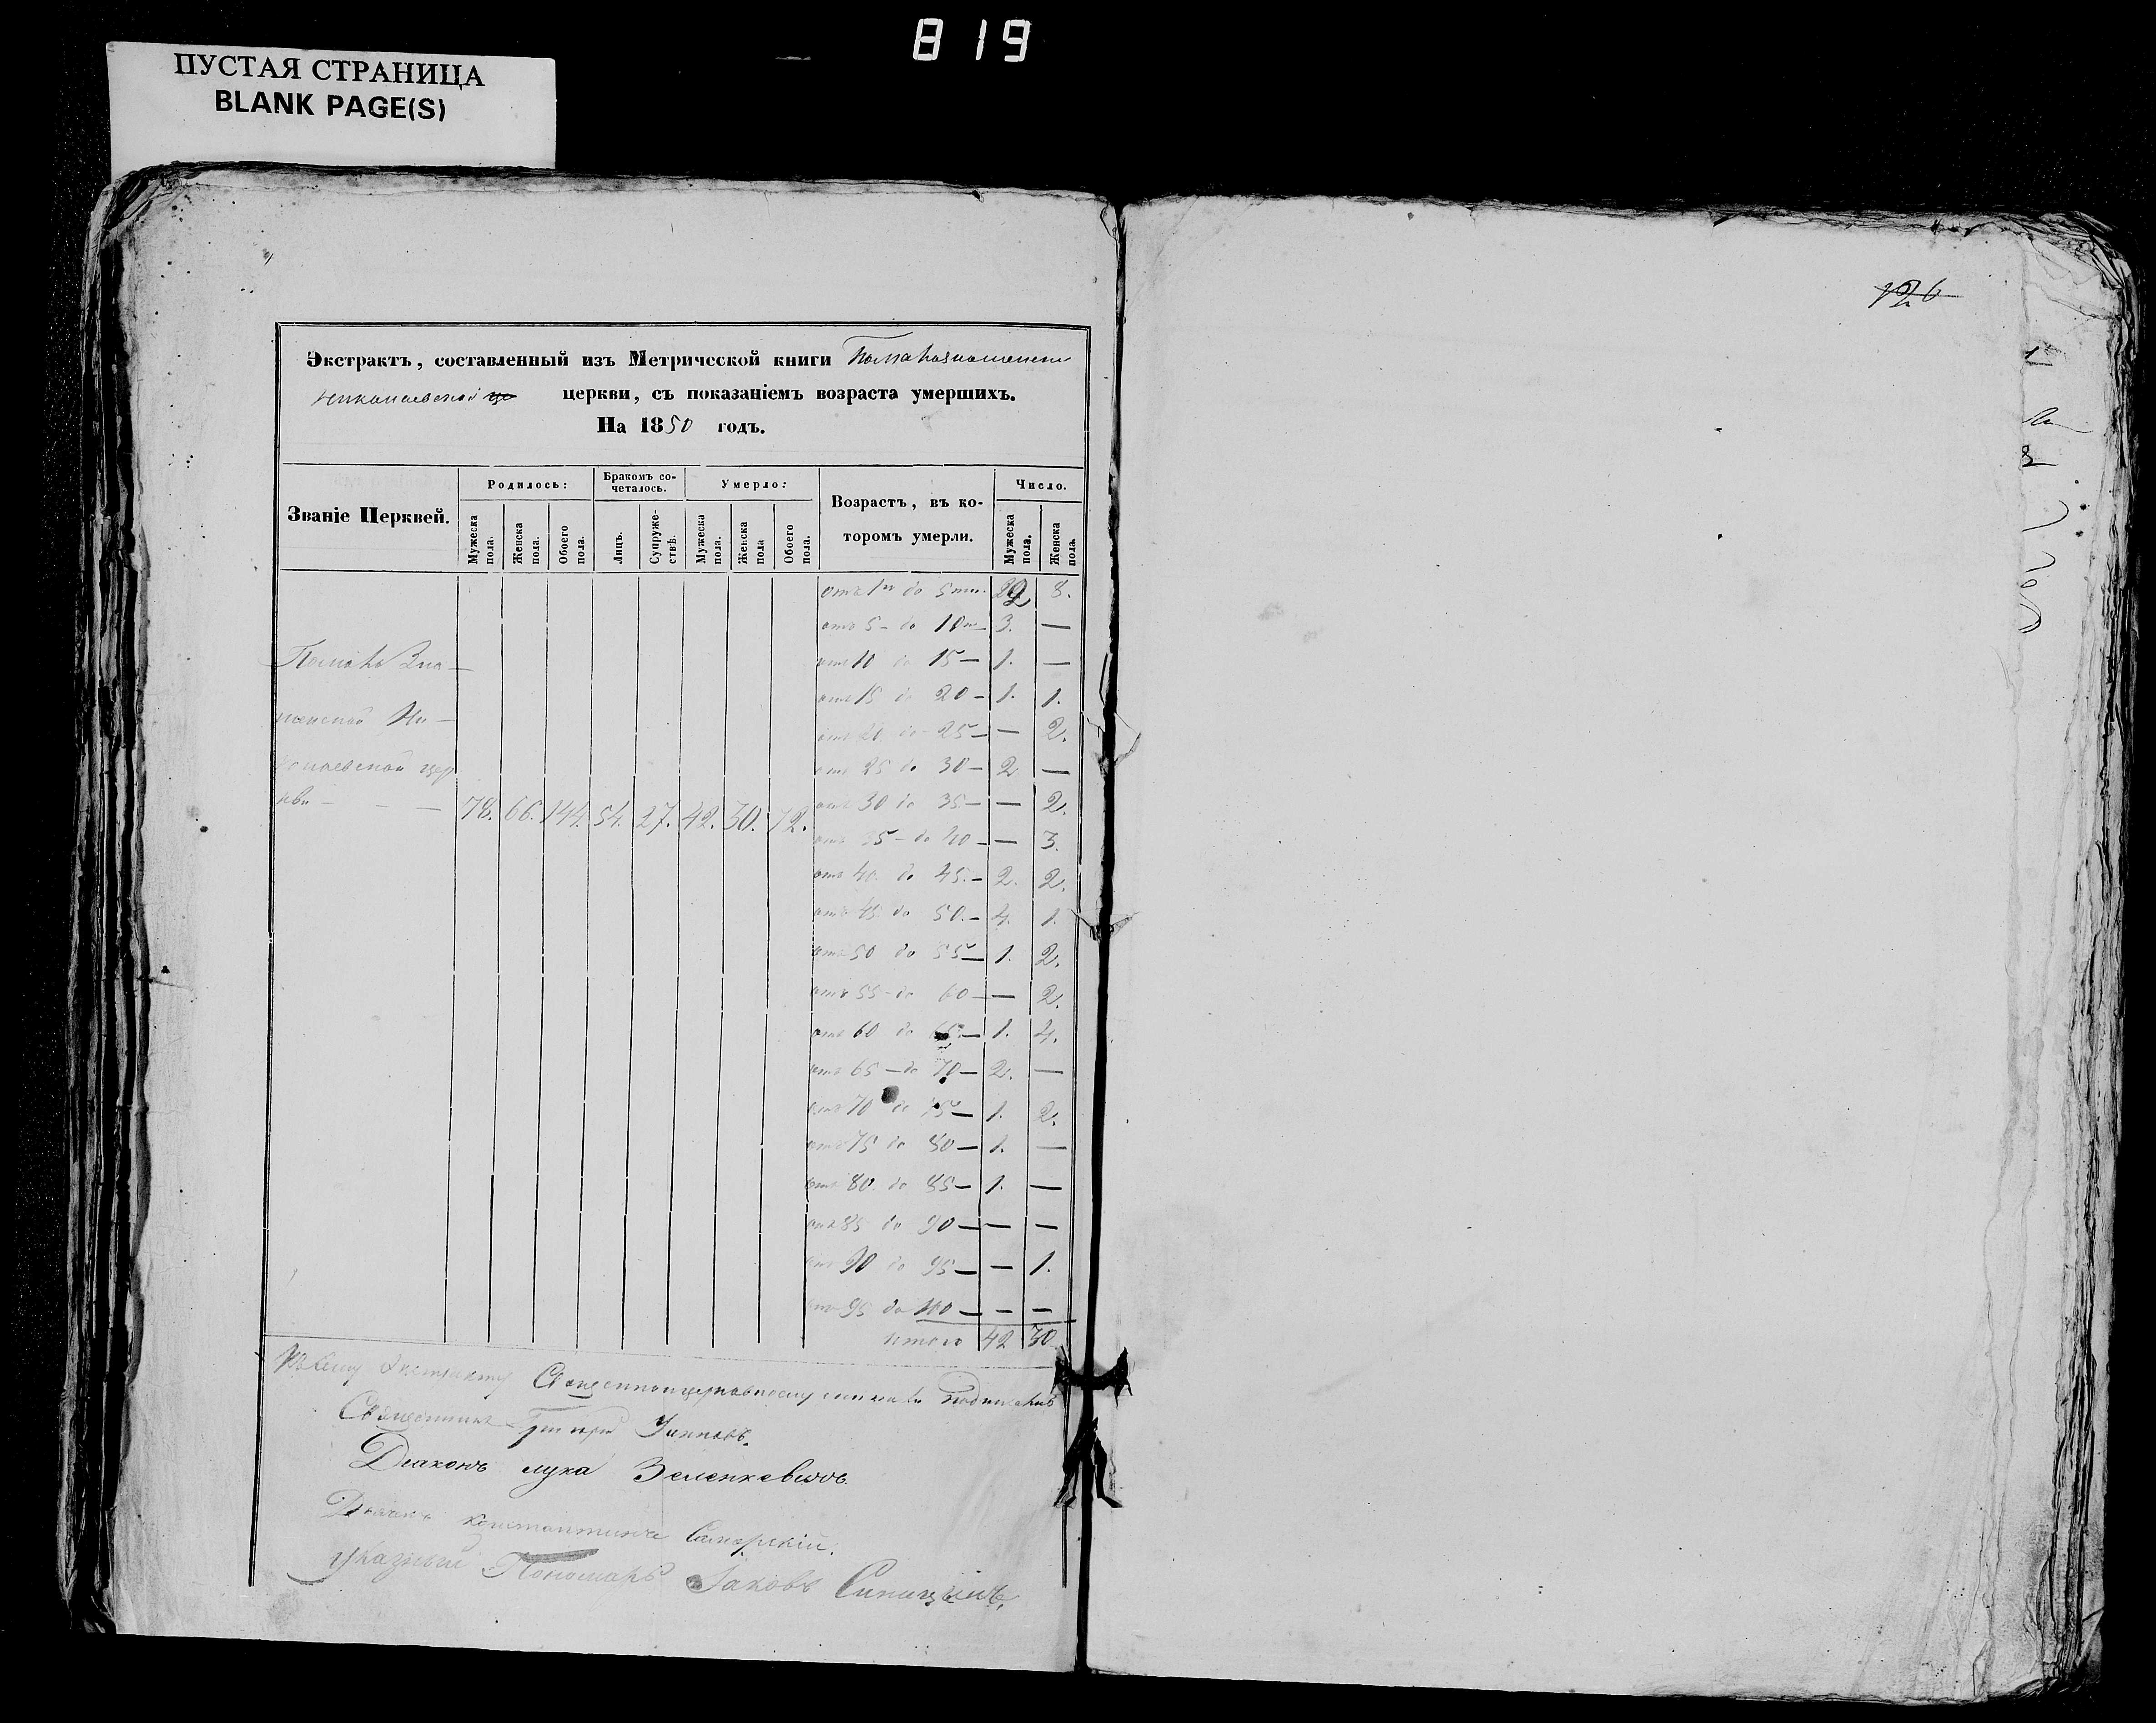 819
ПУСТАЯ СТРАНИЦА
BLANK PAGE(S)
126
Экстрактъ, составленный изъ Метрической книги
Николаевской церкви, съ показаніемъ возраста умершихъ.
На 1850 годъ.
Званіе Церквей.
Родилось:
Мужеска пола.
Женска пола.
Обоего пола.
Бракомъ сочеталось.
Лицъ.
Супружествъ.
Умерло:
Мужеска пола.
Женска пола
Обоего пола.
Возрастъ, въ которомъ умерли.
Число.
Мужеска пола.
Женска пола.
Николаевской цер
кви — — — 78. 66. 144. 54. 27. 42. 30. 72.
отъ 1го до 5ти. 22 8.
отъ 5 — до 10ти — 3. —
отъ 10 до 15 — 1. —
отъ 15 до 20 — 1. 1.
отъ 20 до 25 — — 2.
отъ 25 до 30 — 2 —
отъ 30 до 35 — — 2.
отъ 35 — до 40 — — 3.
отъ 40 до 45. — 2. 2.
отъ 45 до 50. — 4. 1.
отъ 50 до 55 — 1. 2.
отъ 55 — до 60 — — 2.
отъ 60 до 65 — 1. 4.
отъ 65 — до 70 — 2. —
отъ 70 до 75 — 1. 2.
отъ 75 до 80 — 1. —
отъ 80 до 85 — 1. —
отъ 85 до 90 — — —
отъ 90 до 95 — — 1.
отъ 95 до 100 — — —
Итого 42 30
Къ сему Экстракту Священноцерковнослужители подписались
Священникъ Григорій
Діаконъ Лука Зеленкевичъ
Дьячекъ Константинъ Самарскій.
Указный Пономарь Іаковъ Синицынъ.